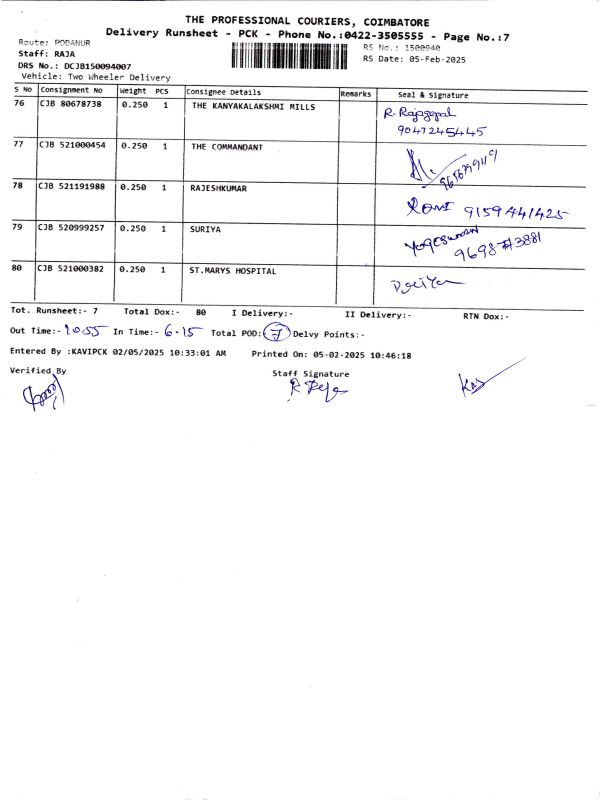 THE PROFESSIONAL COURIERS, COIMBATORE
Delivery Runsheet - PCK - Phone No.:0422-3505555 - Page No.:7
Route: PODANUR
RS No.: 1500940
Staff: RAJA
RS Date: 05-Feb-2025
DRS No.: DCJB150094007
Vehicle: Two Wheeler Delivery
S No Consignment No Weight PCS Consignee Details Remarks Seal & Signature
76 CJB 80678738 0.250 1 THE KANYAKALAKSHMI MILLS R. Rajagopal
9047245445
77 CJB 521000454 0.250 1 THE COMMANDANT
78 CJB 521191988 0.250 1 RAJESHKUMAR 9159441425
79 CJB 520999257 0.250 1 SURIYA
80 CJB 521000382 0.250 1 ST.MARYS HOSPITAL
Tot. Runsheet:- 7 Total Dox:- 80 I Delivery:- II Delivery:- RTN Dox:-
Out Time:- 10.55 In Time:- 6.15 Total POD: 7 Delvy Points:-
Entered By :KAVIPCK 02/05/2025 10:33:01 AM Printed On: 05-02-2025 10:46:18
Verified By Staff Signature